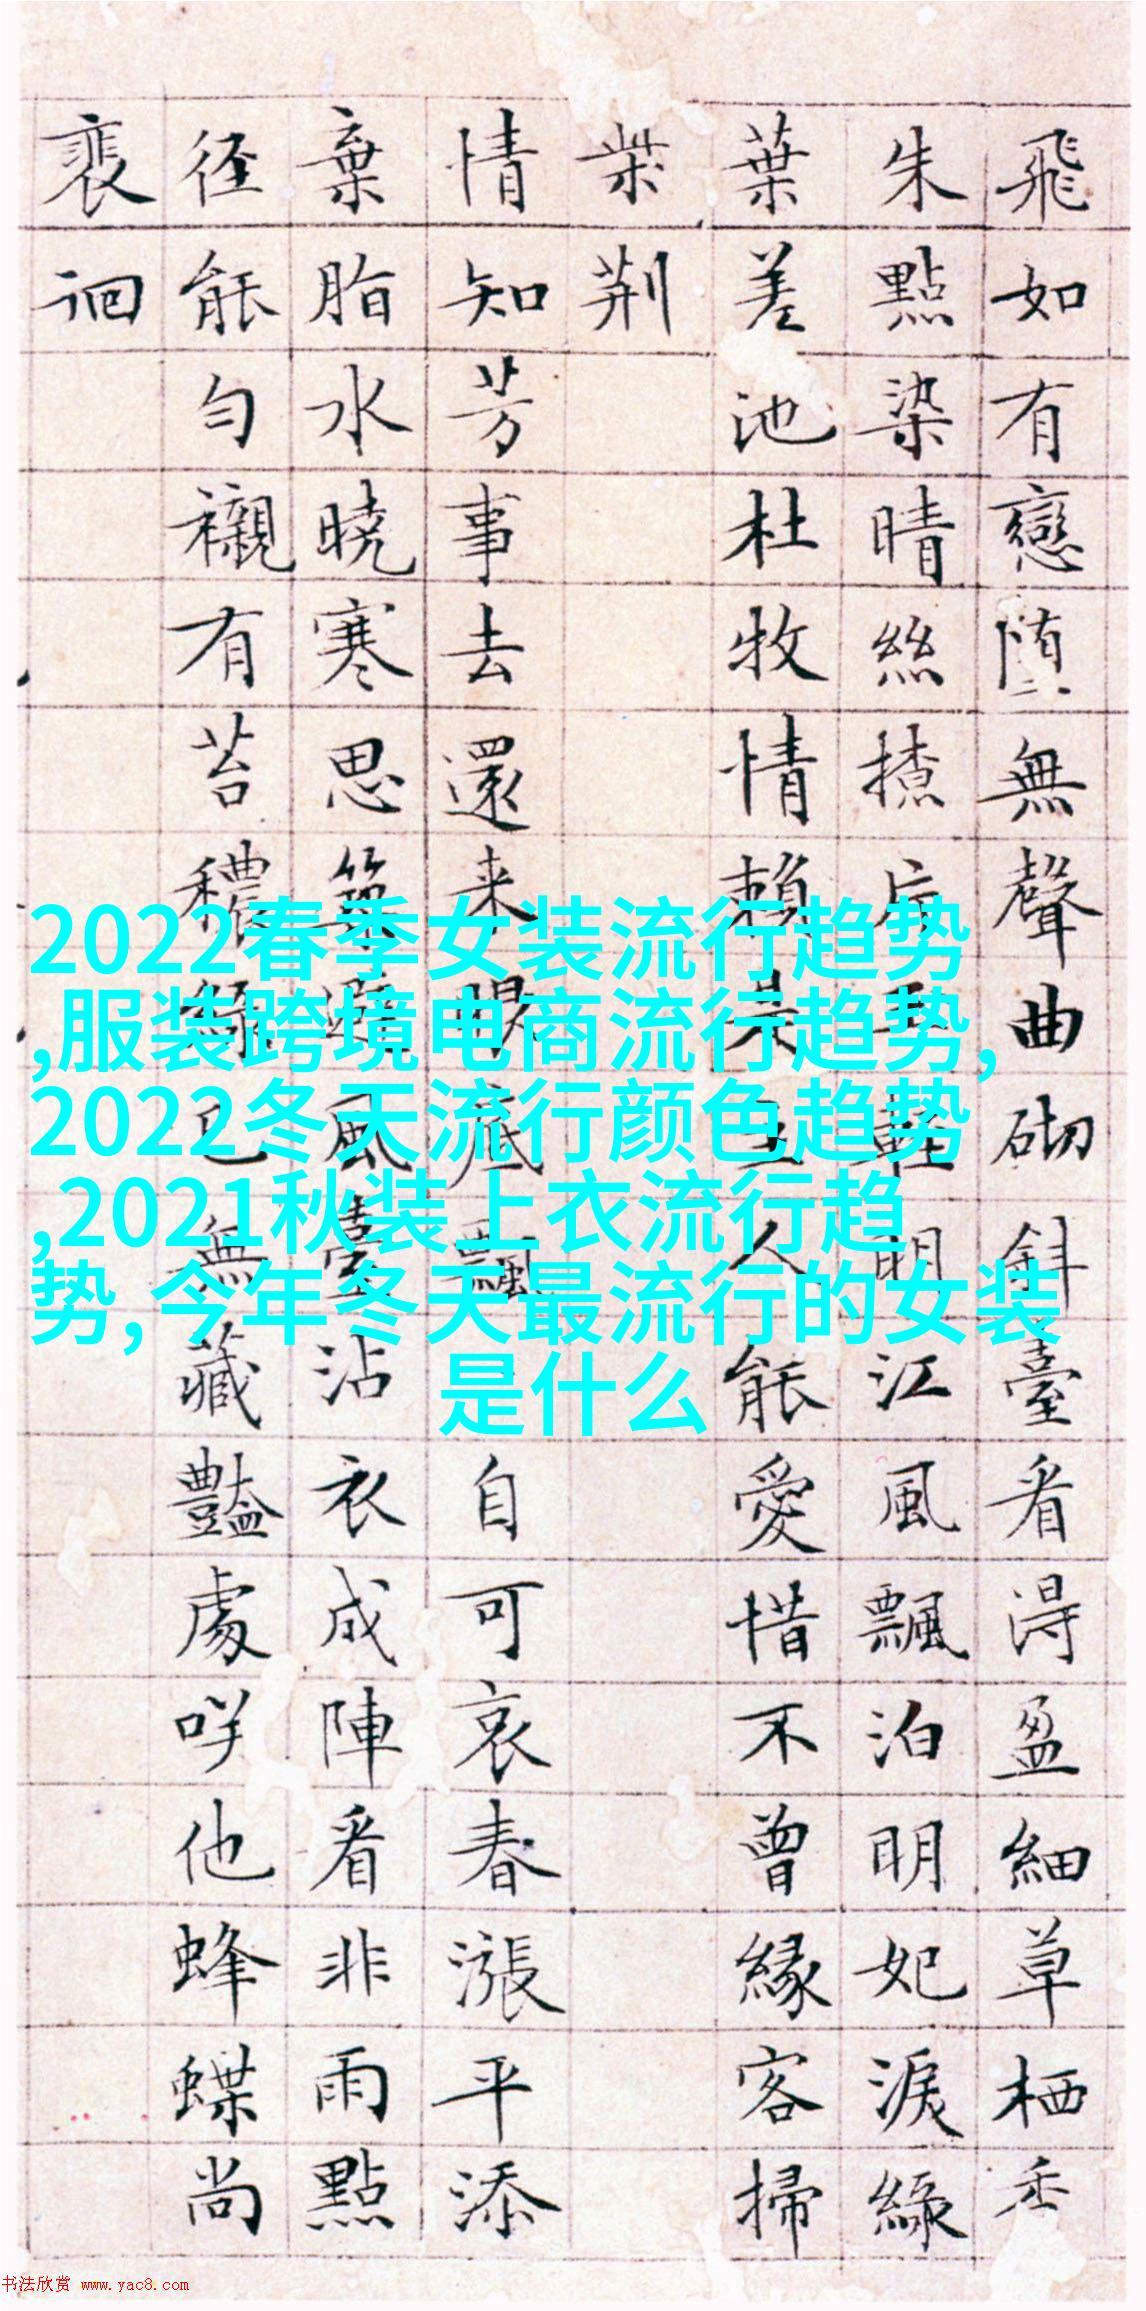 飛如有戀堕無聲曲砌斜臺看淂盈細草栖香
朱點染晴絲片輕明江風飄泊明妃淚綠
葉差池杜牧情賴是主人能愛惜不曾緣客掃
柴荊
情知芳事去還来眼底飄自可哀春漲平添
棄脂水曉寒思築避風臺沾衣成陣看非雨點
徑能勻襯有苔穠綠已無藏豔處咲他蜂蝶尚
裵徊
2022春季女装流行趋势
,服装跨境电商流行趋势,
2022冬天流行颜色趋势
,2021秋装上衣流行趋
势,今年冬天最流行的女装
是什么
书法欣赏 www.yac8.com